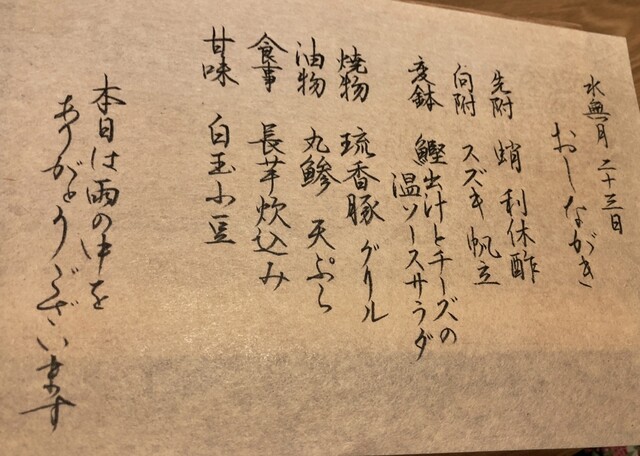 水無月 二十三日
おしながき
先附 蛸 利休酢
向附 スズキ 帆立
変鉢 鰹出汁とチーズの
温ソースサラダ
焼物 琉香豚 グリル
油物 丸鯵 天ぷら
食事 長芋炊込み
甘味 白玉小豆
本日は雨の中を
ありがとうございます